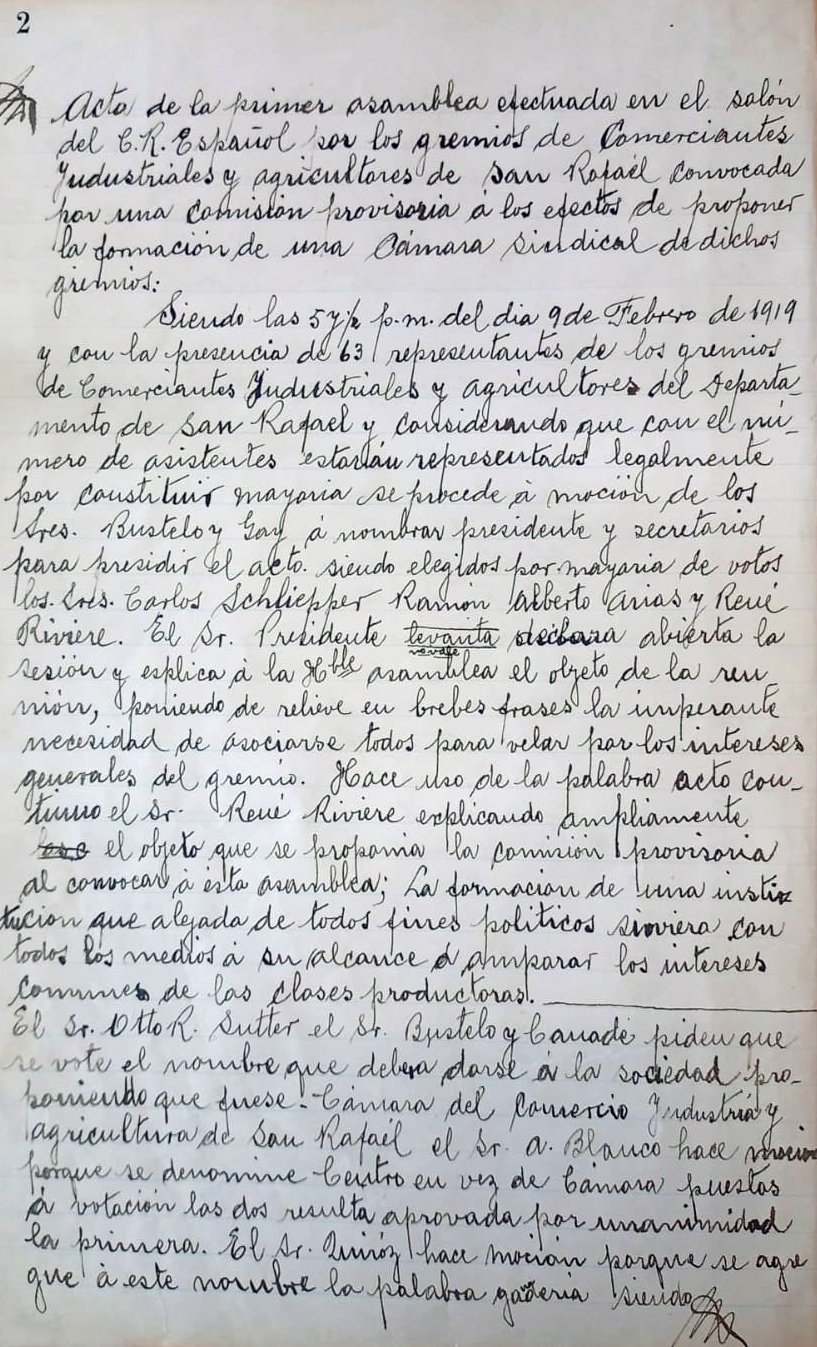 2
Acta de la primer asamblea efectuada en el salón
del C. R. Español por los gremios de Comerciantes
Industriales y agricultores de San Rafael convocada
por una comisión provisoria á los efectos de proponer
la formación de una Cámara Sindical de dichos
gremios:
Siendo las 5 y ½ p.m. del dia 9 de Febrero de 1919
y con la presencia de 63 representantes de los gremios
de Comerciantes Industriales y agricultores del Departa-
mento de San Rafael y considerando que con el nú-
mero de asistentes estarián representados legalmente
por constituir mayoria se procede á moción de los
Sres. Bustelo y Gay á nombrar presidente y secretarios
para presidir el acto. siendo elegidos por mayaria de votos
los. Sres. Carlos Schliepper Ramón Alberto Arias y René
Riviere. El Sr. Presidente levanta declara abierta la
no vale
sesión y esplica á la Hble asamblea el objeto de la reu-
nión, poniendo de relieve en brebes frases la imperante
necesidad de asociarse todos para velar por los intereses
generales del gremio. Hace uso de la palabra acto con-
tinuo el Sr. René Riviere explicando ampliamente
el objeto que se proponia la comisión provisoria
al convocar á esta asamblea; La formación de una insti-
tución que alejada de todos fines politicos sirviera con
todos los medios á su alcance á amparar los intereses
comunes de las clases productoras.
El Sr. Otto R. Sutter el Sr. Bustelo y Canadé piden que
se vote el nombre que debera darse á la sociedad pro-
poniendo que fuese - Cámara del Comercio Industria y
agricultura de San Rafael el Sr. A. Blanco hace mocion
porque se denomine Centro en vez de Cámara puestas
á votación las dos resulta aprovada por unanimidad
la primera. El Sr. Quiróz hace moción porque se agre
gue á este nombre la palabra ganaderia siendo